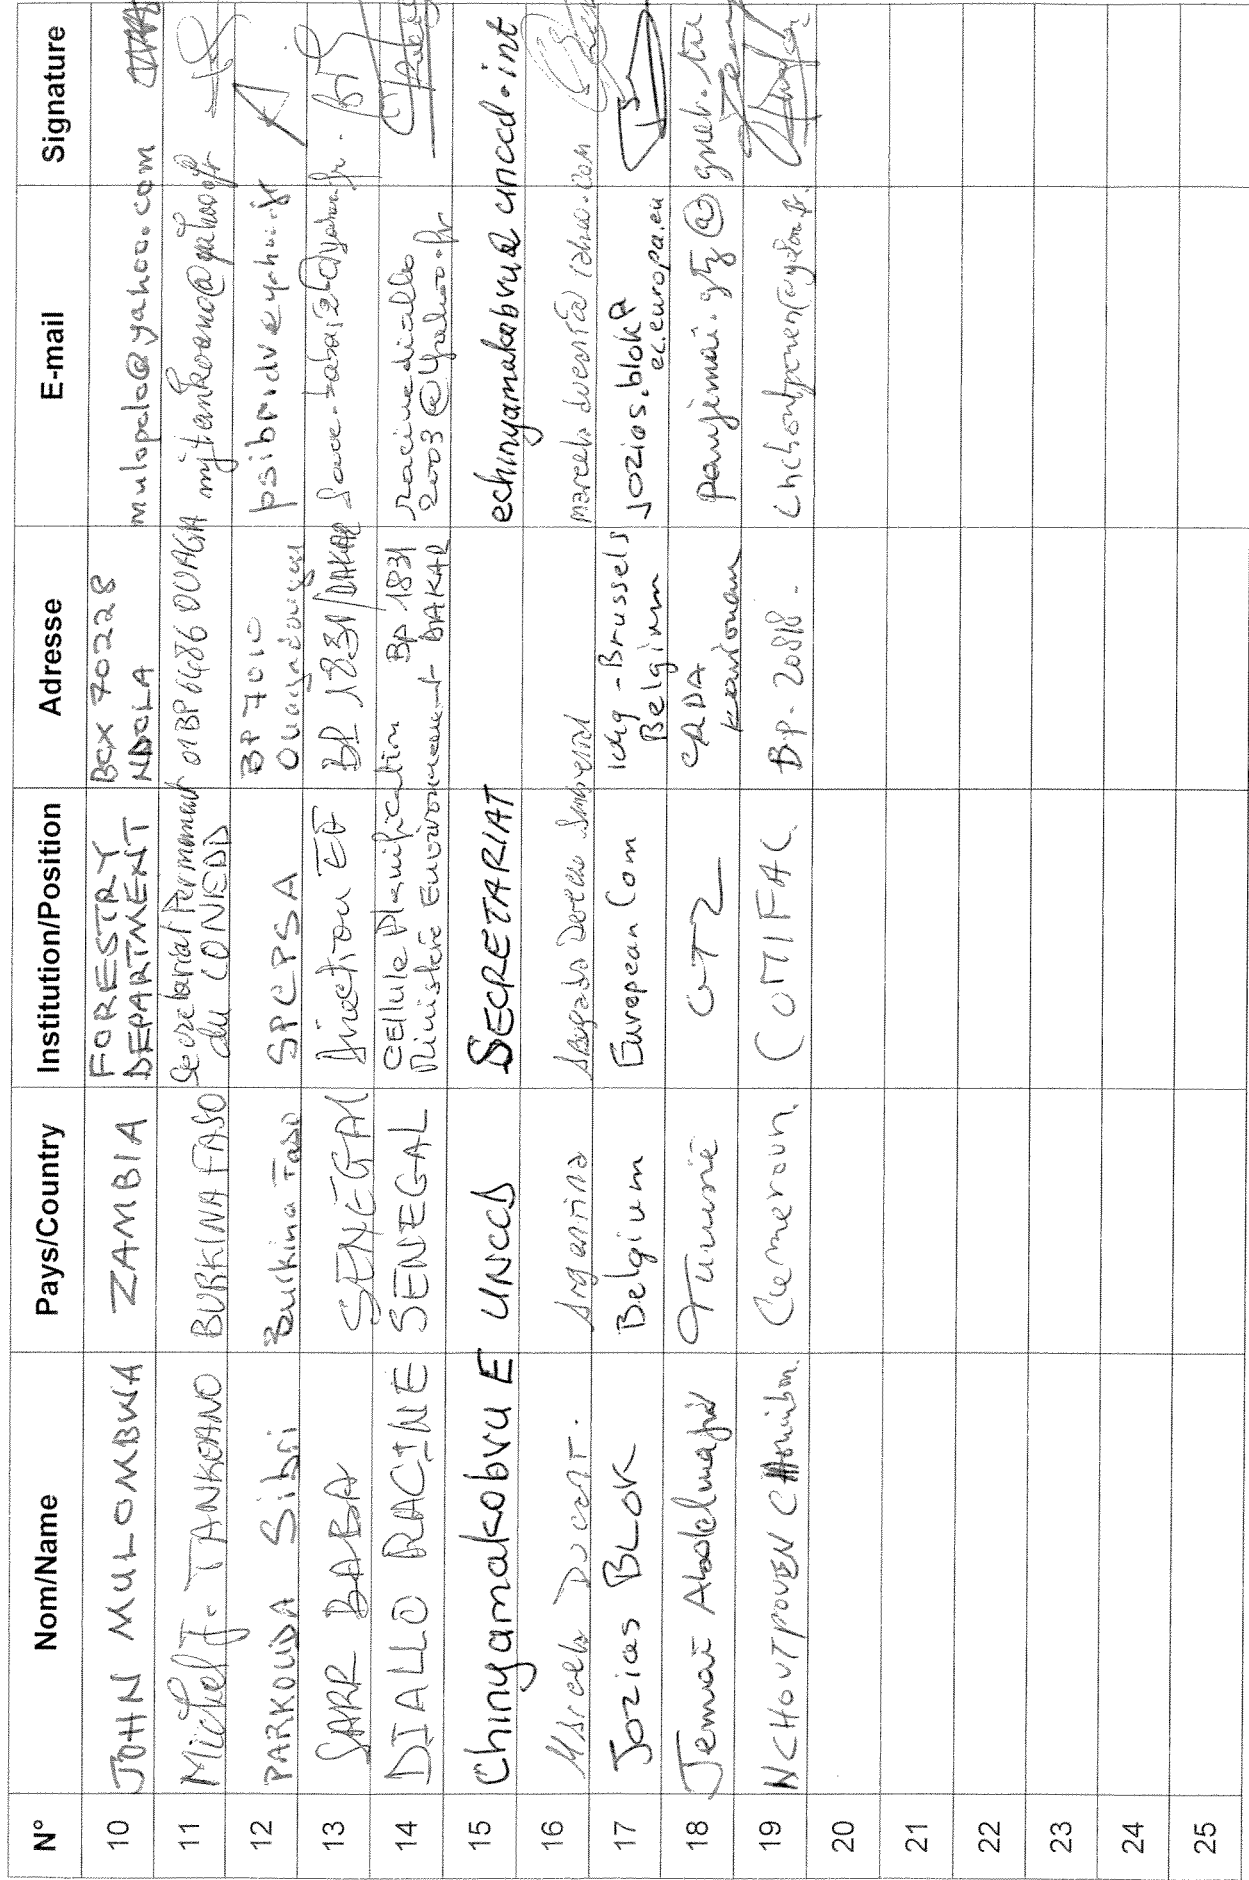 N° Nom/Name Pays/Country Institution/Position Adresse E-mail Signature
10 JOHN MULOMBWA ZAMBIA FORESTRY DEPARTMENT BOX 70228 NDOLA mulopelo@yahoo.com
11 Michel J. TANKOANO BURKINA FASO Secretariat Permanent du CONEDD 01BP6486 OUAGA mjtankoano@yahoo.fr
12 PARKOUDA Sibri Burkina Faso SPCPSA BP 7010 Ouagadougou psibridv@yahoo.fr
13 SARR BABA SENEGAL Direction EF BP 1831/DAKAR
14 DIALLO RACINE SENEGAL Cellule Planification Ministère Environnement Bp 1831 DAKAR racinediallo 2003@yahoo.fr
15 Chinyamakobvu E UNCCD SECRETARIAT echinyamakobvu@unccd.int
16 Argentina
17 Jozias BLOK Belgium European Com 1049-Brussels Belgium jozias.blok@ ec.europa.eu
18 Jemai Abdelmajid Tunisie GTZ
19 NCHOUTPOUEN Cameroun. COMIFAC. Bp. 20818.
20
21
22
23
24
25